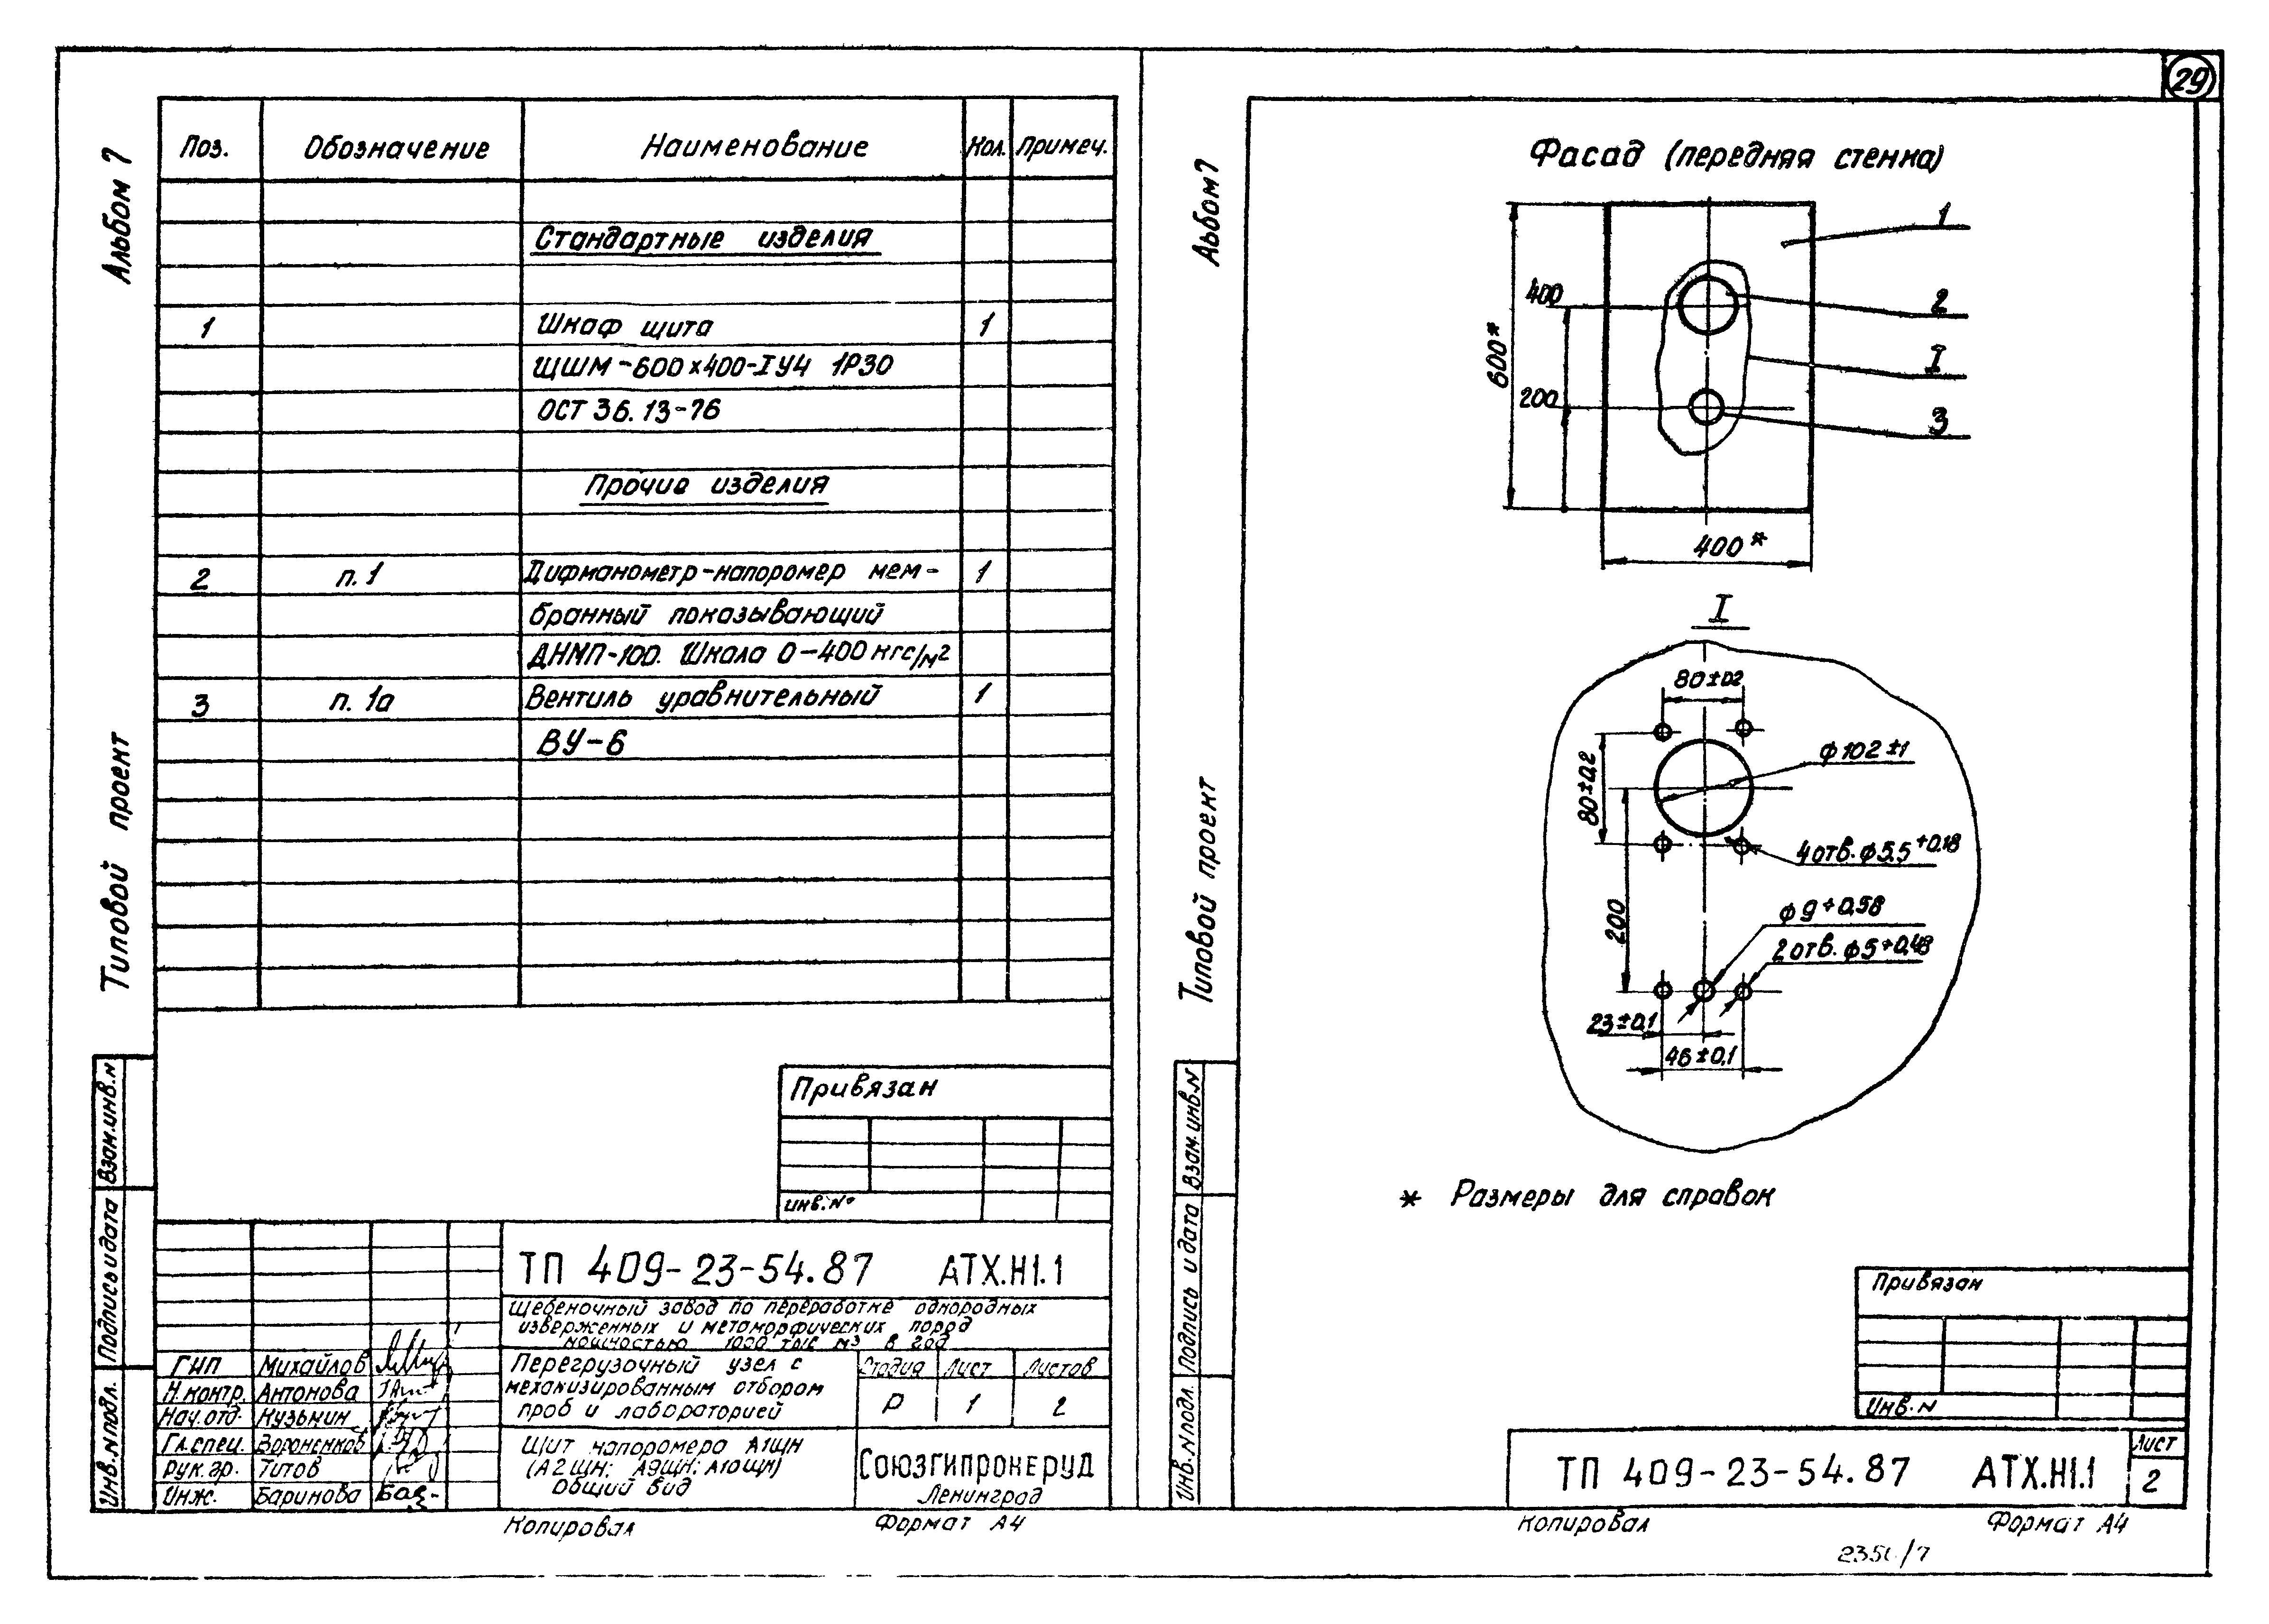 29
Альбом 7
Типовой проект
Поз.
Обозначение
Наименование
Кол.
Примеч.
Стандартные изделия
1
Шкаф щита
1
ЩШМ-600х400-IУ4 1Р30
ОСТ 36.13-76
Прочие изделия
2
п.1
Дифманометр-напоромер мем-
1
бранный показывающий
ДНМП-100. Шкала 0-400 кгс/м2
3
п. 1а
Вентиль уравнительный
1
ВУ-6
Привязан
Инв.№
Взам.инв.N
Подпись и дата
Инв.N подл.
ТП 409-23-54.87 АТХ.Н1.1
Щебеночный завод по переработке однородных
изверженных и метаморфических пород
мощностью 1000 тыс м3 в год
ГИП Михайлов
Н.контр. Антонова
Нач.отд. Кузьмин
Гл.спец. Вороненков
Рук.гр. Титов
Инж. Баринова
Перегрузочный узел с
механизированным отбором
проб и лабораторией
Стадия Лист Листов
Р 1 2
Щит напоромера А1ЩН
(А2ЩН; А9ЩН; А10ЩН)
Общий вид
Союзгипронеруд
Ленинград
Копировал
Формат А4
Аьбом 7
Типовой проект
Фасад (передняя стенка)
1
2
I
3
400
200
600*
400*
I
80±0,2
80±0,2
ф102±1
4отв. ф5,5+0,18
200
ф9+0,58
2отв. ф5+0,48
23±0,1
46±0,1
* Размеры для справок
Привязан
Инв.N
Взам.инв.N
Подпись и дата
Инв.N подл.
ТП 409-23-54.87 АТХ.Н1.1
Лист
2
Копировал
Формат А4